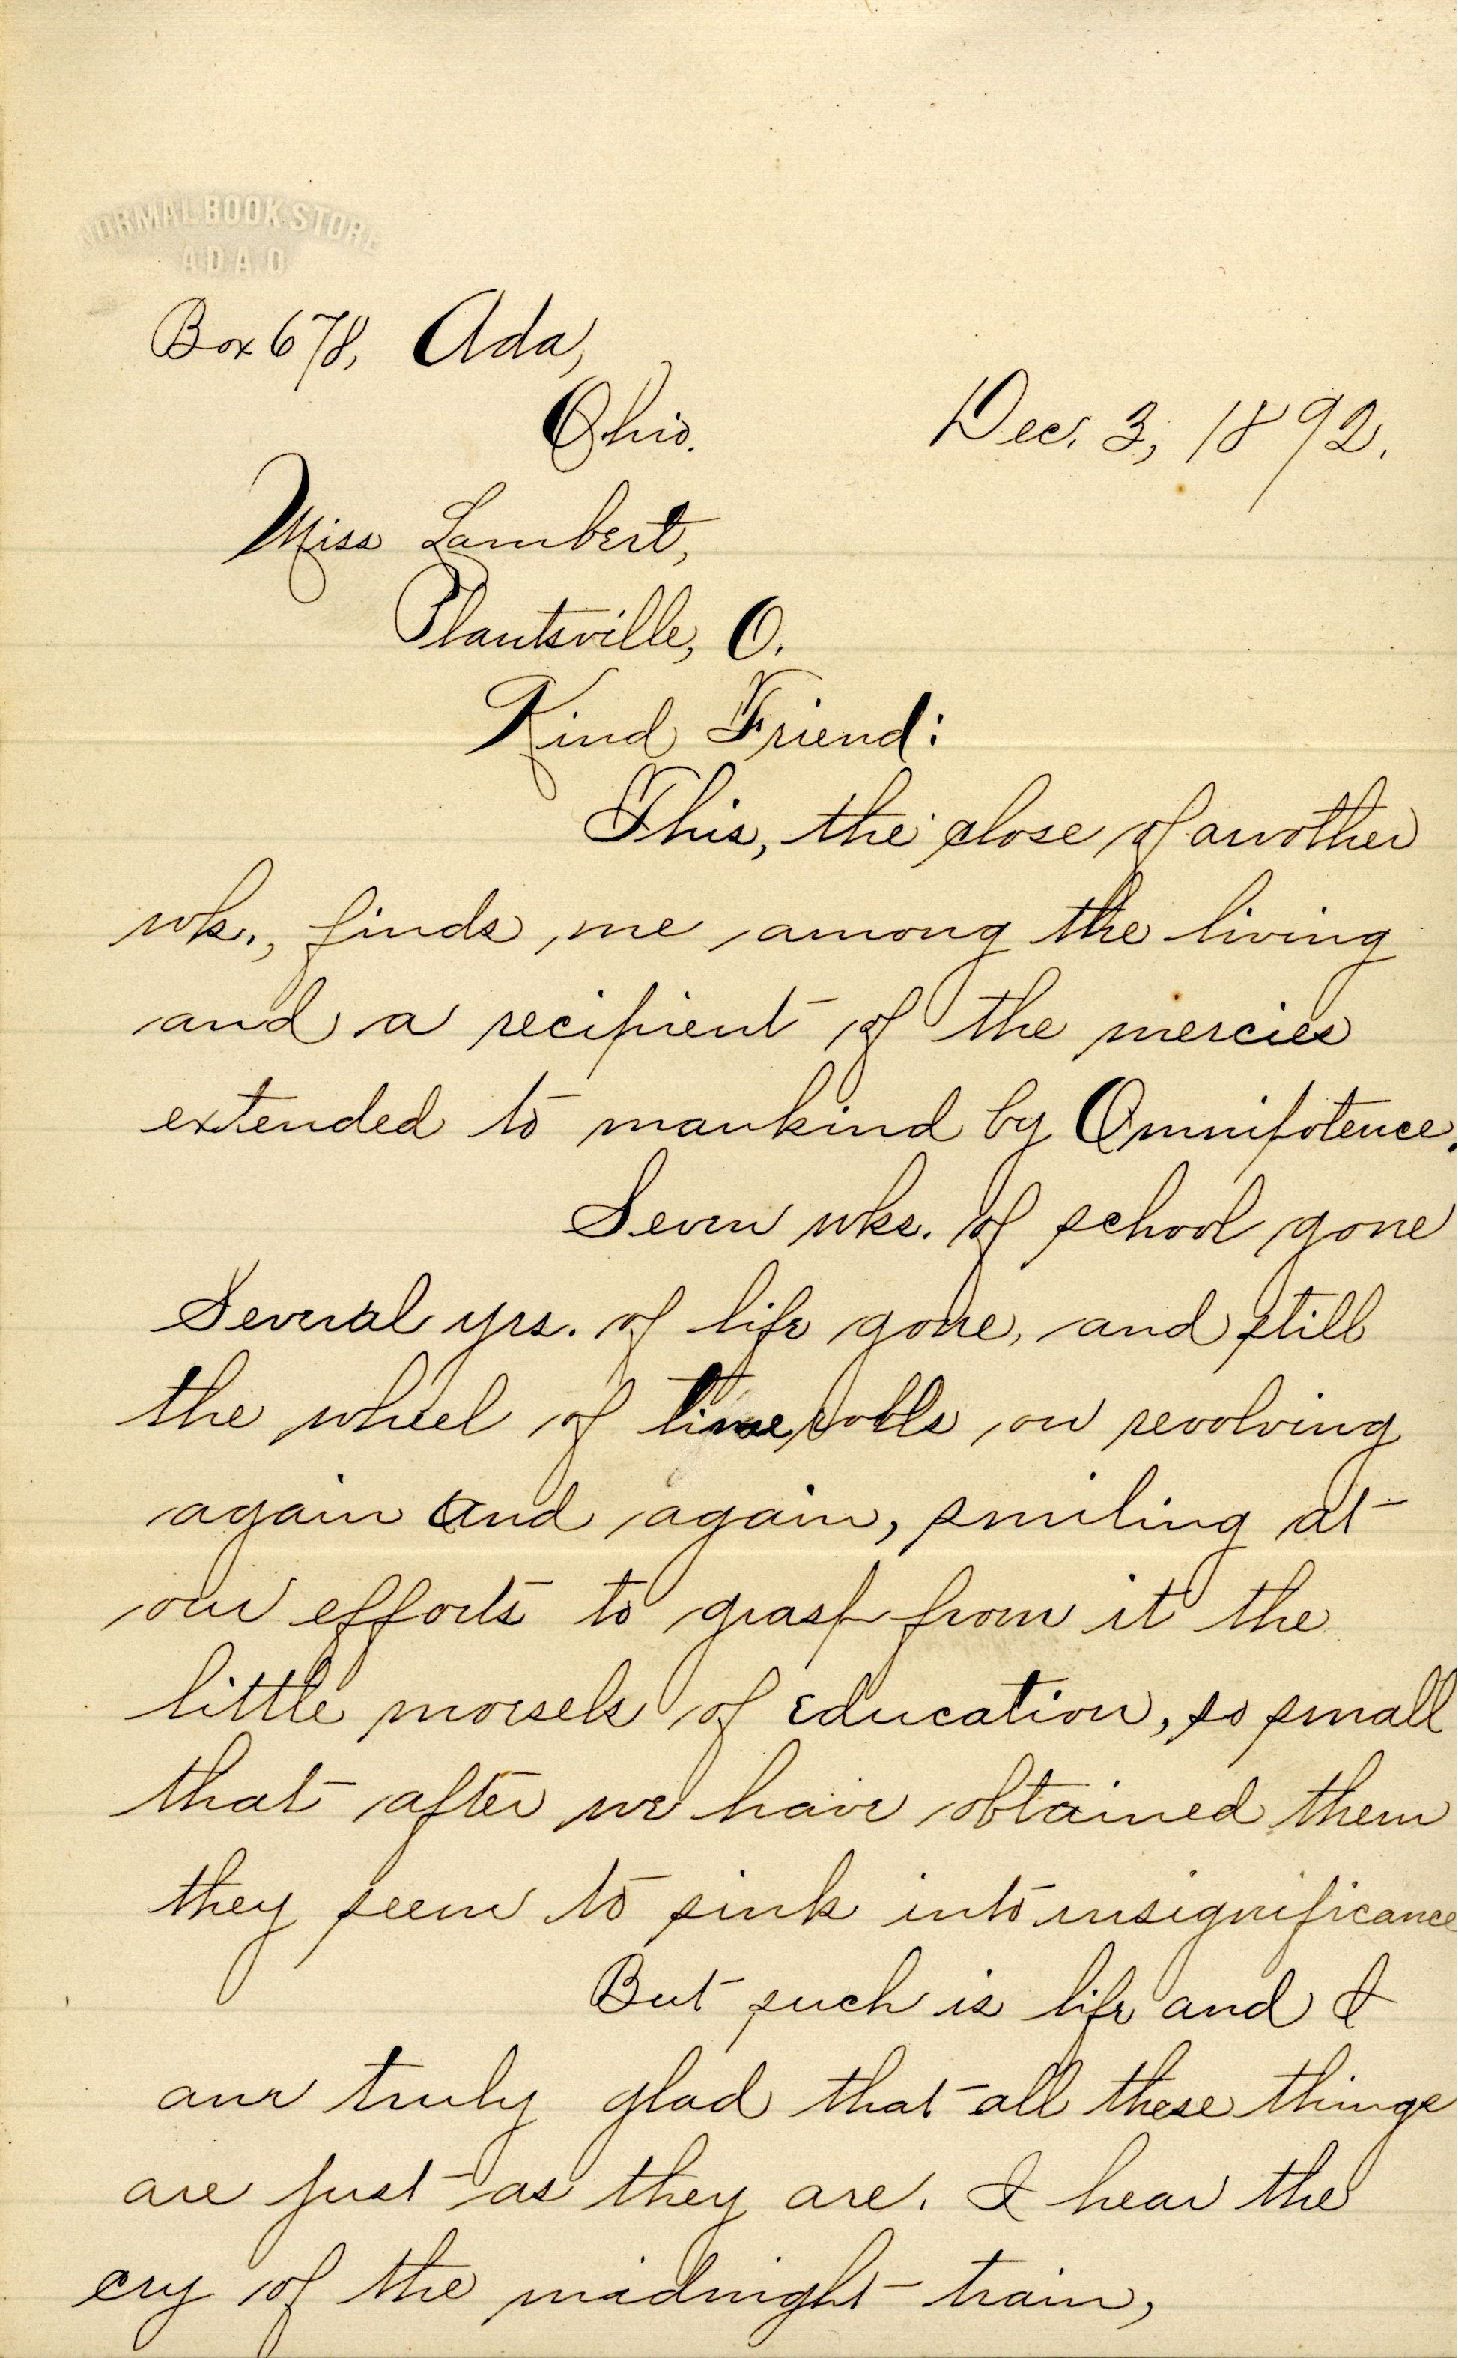 NORMAL BOOK STORE
ADA O
Box 678, Ada,
Ohio. Dec. 3, 1892.
Miss Lambert,
Plantsville, O.
Kind Friend:
This, the close of another
wk., finds me among the living
and a recipient of the mercies
extended to mankind by Omnipotence.
Seven wks. of school gone
Several yrs. of life gone, and still
the wheel of time rolls on revolving
again and again, smiling at
our efforts to grasp from it the
little morsels of education, so small
that after we have obtained them
they seem to sink into insignificance
But such is life and I
am truly glad that all these things
are just as they are. I hear the
cry of the midnight train,